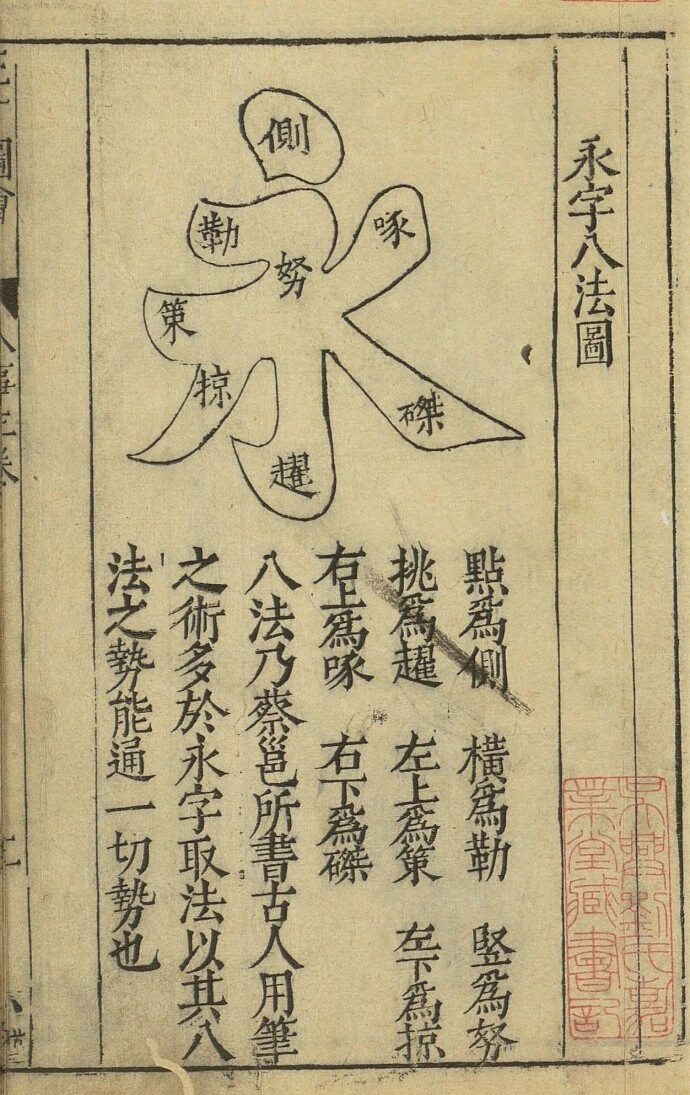 永字八法圖
側
勒
努
啄
策
掠
磔
趯
點爲側 橫爲勒 竪爲努
挑爲趯 左上爲策 左下爲掠
右上爲啄 右下爲磔
八法乃蔡邕所書古人用筆
之術多於永字取法以其八
法之勢能通一切勢也
吳興劉氏嘉
業堂藏書記